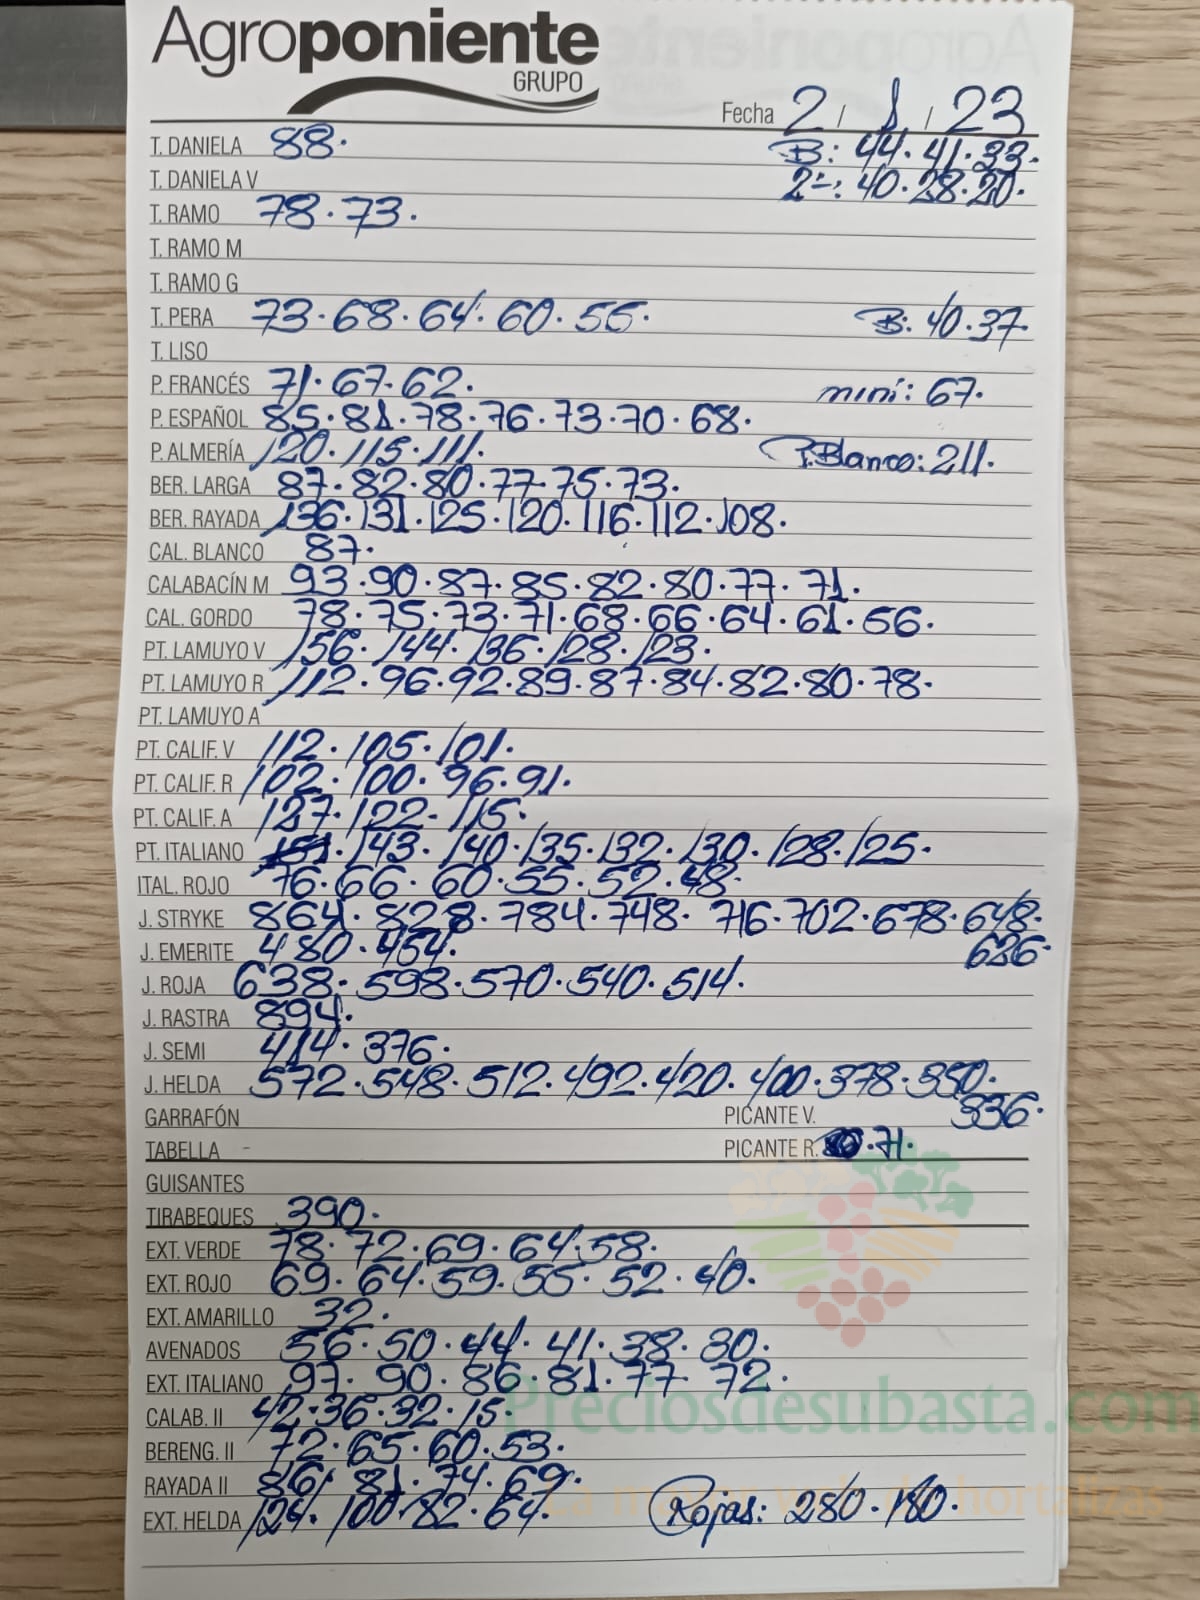 Agroponiente
GRUPO
Fecha 2 / 1 / 23
T. DANIELA 88. B: 44. 41. 33.
T. DANIELA V 2ª: 40. 28. 20.
T. RAMO 78. 73.
T. RAMO M
T. RAMO G
T. PERA 73. 68. 64. 60. 55. B: 40. 37.
T. LISO
P. FRANCÉS 71. 67. 62. mini: 67.
P. ESPAÑOL 85. 81. 78. 76. 73. 70. 68.
P. ALMERÍA 120. 115. 111. P. Blanco: 211.
BER. LARGA 87. 82. 80. 77. 75. 73.
BER. RAYADA 136. 131. 125. 120. 116. 112. 108.
CAL. BLANCO 87.
CALABACÍN M 93. 90. 87. 85. 82. 80. 77. 71.
CAL. GORDO 78. 75. 73. 71. 68. 66. 64. 61. 56.
PT. LAMUYO V 156. 144. 136. 128. 123.
PT. LAMUYO R 112. 96. 92. 89. 87. 84. 82. 80. 78.
PT. LAMUYO A
PT. CALIF. V 112. 105. 101.
PT. CALIF. R 102. 100. 96. 91.
PT. CALIF. A 127. 122. 115.
PT. ITALIANO 143. 140. 135. 132. 130. 128. 125.
ITAL. ROJO 76. 66. 60. 55. 52. 48.
J. STRYKE 864. 828. 784. 748. 716. 702. 678. 648.
J. EMERITE 480. 454. 626.
J. ROJA 638. 598. 570. 540. 514.
J. RASTRA 894.
J. SEMI 414. 376.
J. HELDA 572. 548. 512. 492. 420. 400. 378. 350.
GARRAFÓN PICANTE V. 336.
TABELLA - PICANTE R. 71.
GUISANTES
TIRABEQUES 390.
EXT. VERDE 78. 72. 69. 64. 58.
EXT. ROJO 69. 64. 59. 55. 52. 40.
EXT. AMARILLO 32.
AVENADOS 56. 50. 44. 41. 38. 30.
EXT. ITALIANO 97. 90. 86. 81. 77. 72.
CALAB. II 42. 36. 32. 15.
Preciosdesubasta.com
BERENG. II 72. 65. 60. 53.
RAYADA II 86. 81. 74. 69.
EXT. HELDA 124. 100. 82. 64. Rojas: 280. 180.